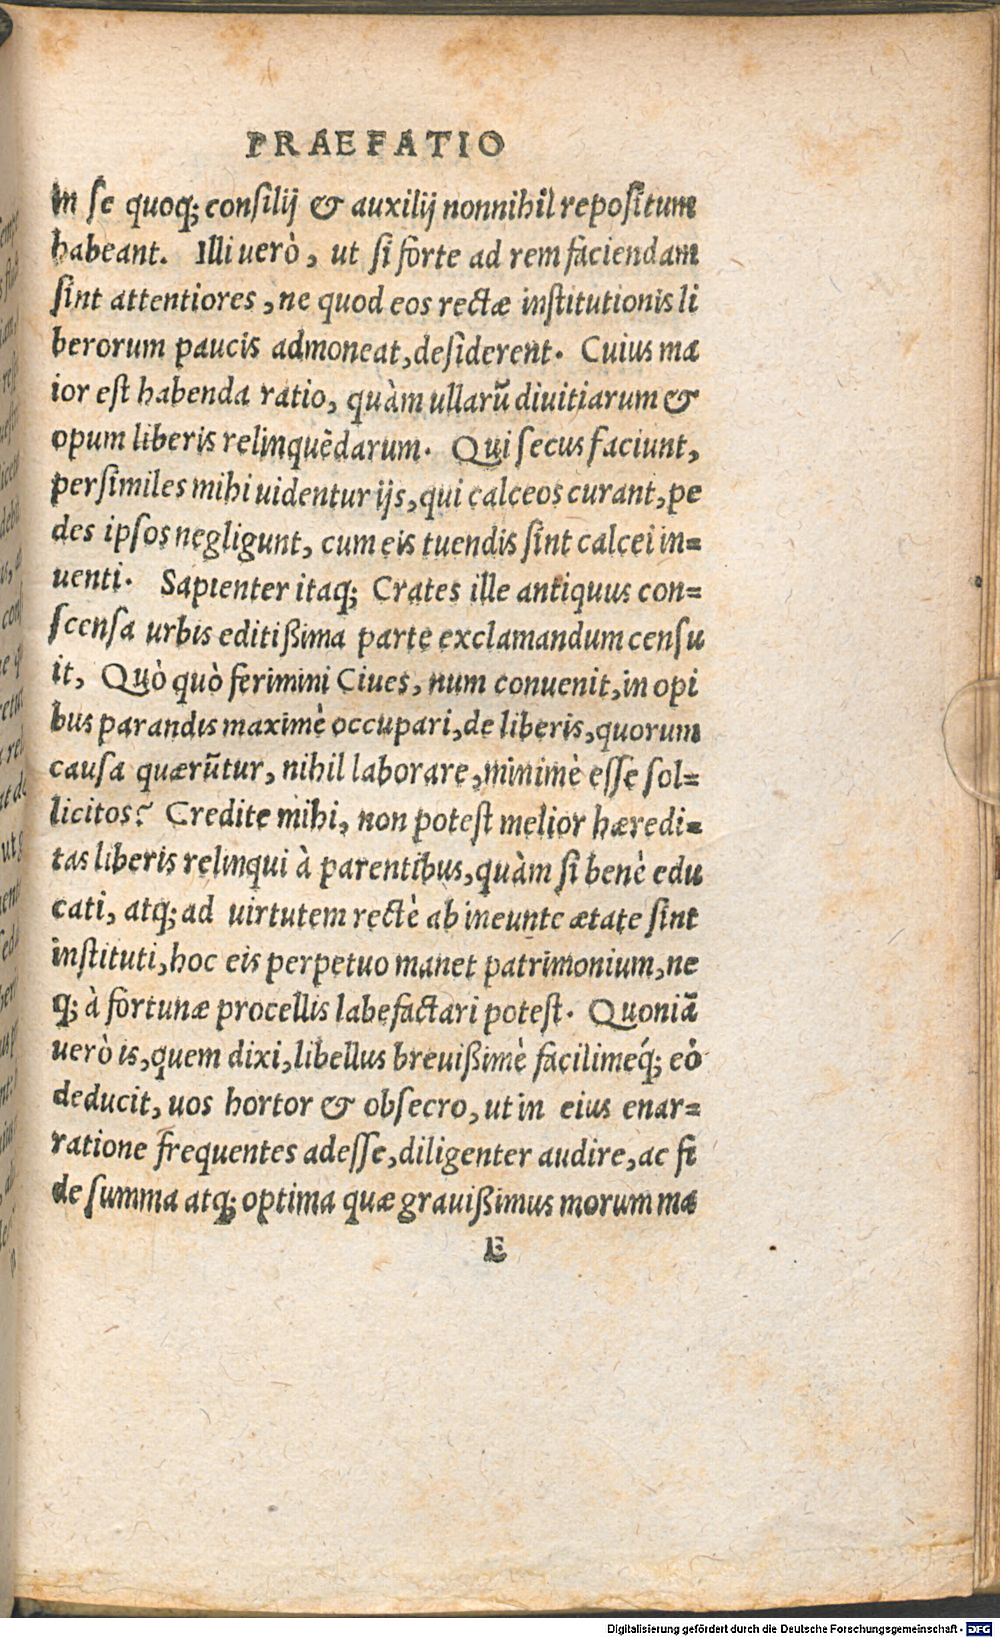 PRAEFATIO
in se quoq; consilij & auxilij nonnihil repositum
habeant. Illi uerò, ut si forte ad rem faciendam
sint attentiores, ne quod eos rectæ institutionis li
berorum paucis admoneat, desiderent. Cuius ma
ior est habenda ratio, quàm ullarũ diuitiarum &
opum liberis relinquẽdarum. Qui secus faciunt,
persimiles mihi uidentur ijs, qui calceos curant, pe
des ipsos negligunt, cum eis tuendis sint calcei in=
uenti. Sapienter itaq; Crates ille antiquus con=
scensa urbis editißima parte exclamandum censu
it, Quò quò ferimini Ciues, num conuenit, in opi
bus parandis maximè occupari, de liberis, quorum
causa quærũtur, nihil laborare, minimè esse sol=
licitos? Credite mihi, non potest melior hæredi=
tas liberis relinqui à parentibus, quàm si benè edu
cati, atq; ad uirtutem rectè ab ineunte ætate sint
instituti, hoc eis perpetuo manet patrimonium, ne
q; à fortunæ procellis labefactari potest. Quoniã
uerò is, quem dixi, libellus breuißimè facilimeq́; eò
deducit, uos hortor & obsecro, ut in eius enar=
ratione frequentes adesse, diligenter audire, ac fi
de summa atq; optima quæ grauißimus morum ma
E
Digitalisierung gefördert durch die Deutsche Forschungsgemeinschaft - DFG